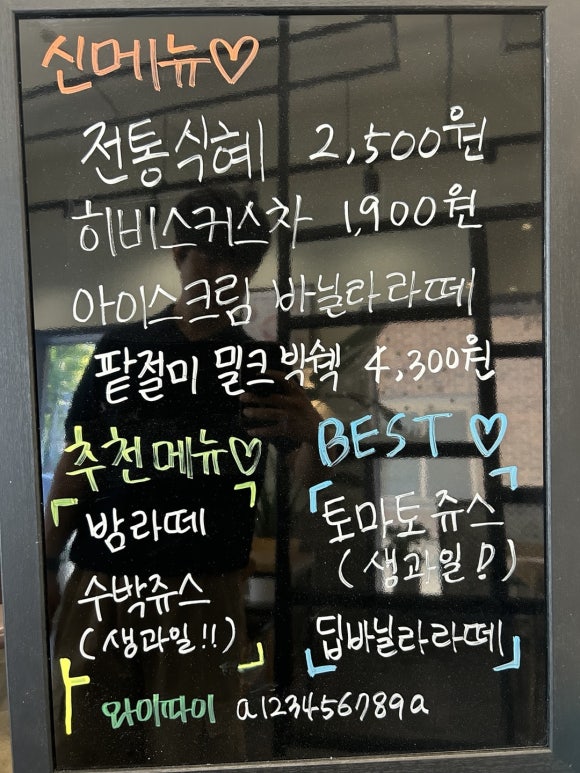 신메뉴♡
전통식혜 2,500원
히비스커스차 1,900원
아이스크림 바닐라라떼
팥절미 밀크박쉑 4,300원
추천메뉴♡
밤라떼
수박쥬스
(생과일!!)
BEST♡
토마토쥬스
(생과일!)
딥바닐라라떼
와이파이 a123456789a